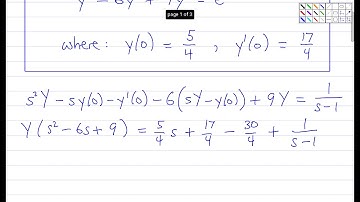 page 1 of 3
where: y(0) = 5/4 , y'(0) = 17/4
s²Y - sy(0) - y'(0) - 6(sY - y(0)) + 9Y = 1/(s-1)
Y(s² - 6s + 9) = 5/4 s + 17/4 - 30/4 + 1/(s-1)